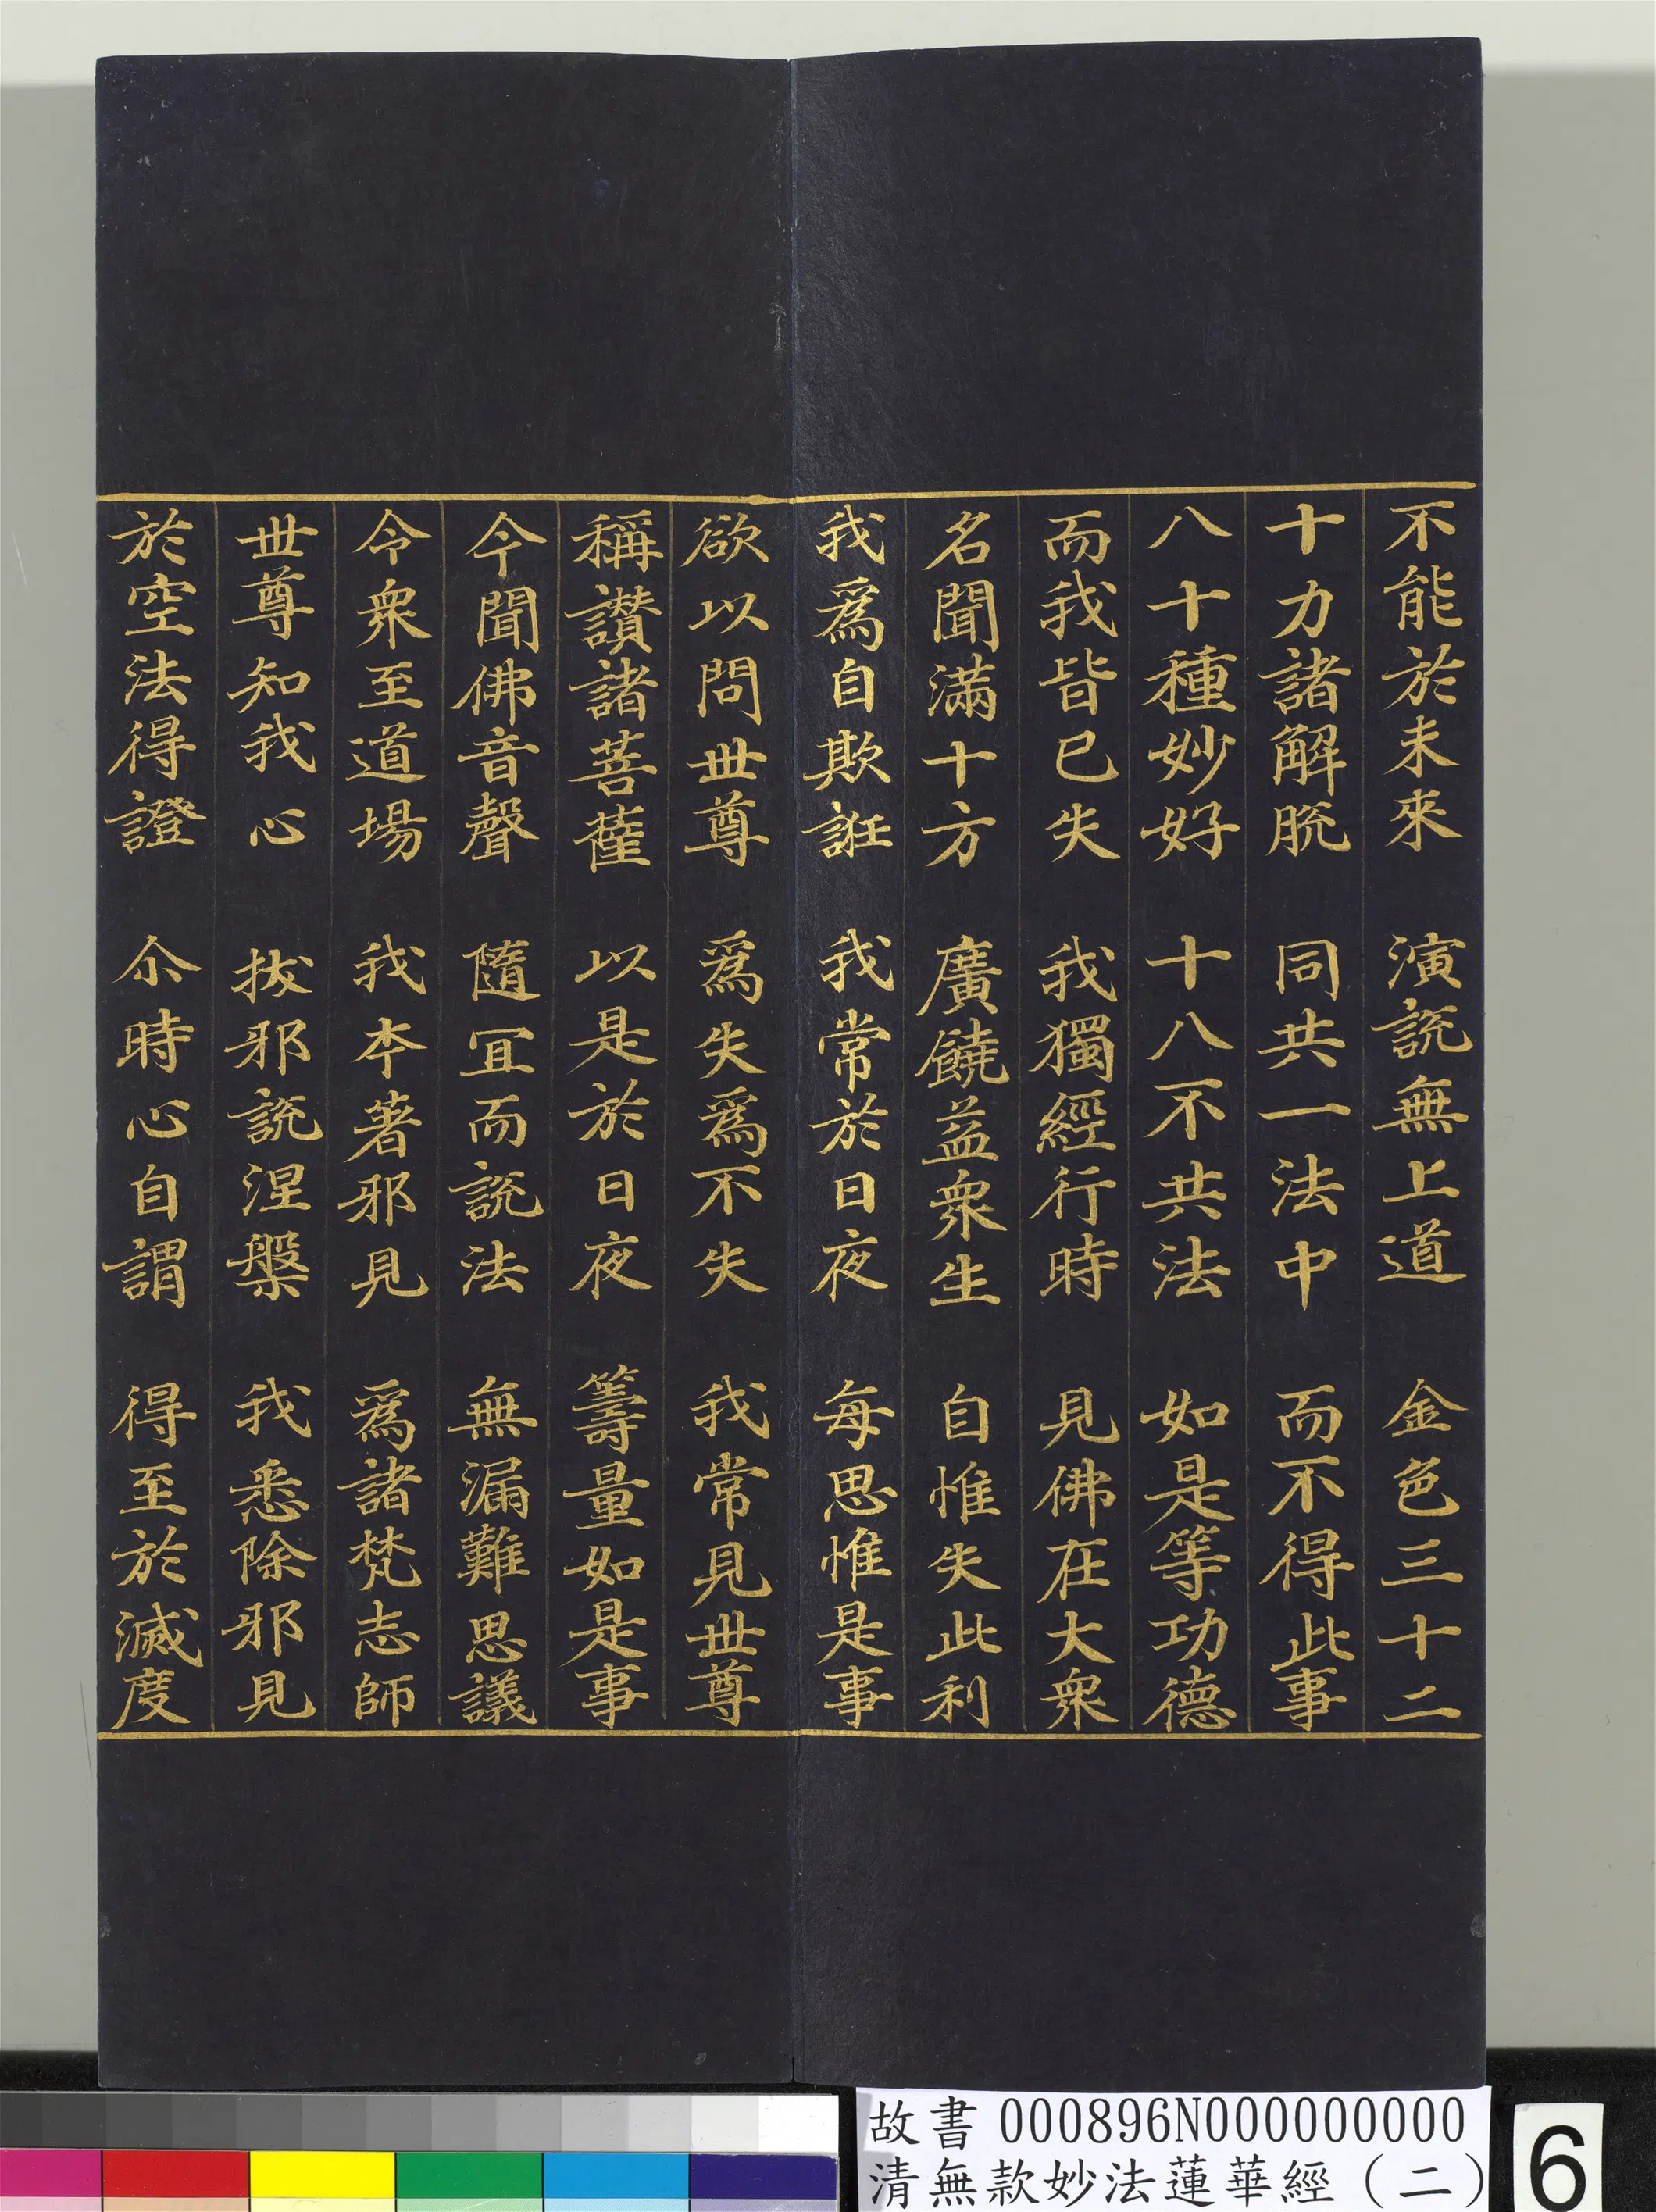 不能於未來 演說無上道 金色三十二
十力諸解脫 同共一法中 而不得此事
八十種妙好 十八不共法 如是等功德
而我皆已失 我獨經行時 見佛在大衆
名聞滿十方 廣饒益衆生 自惟失此利
我爲自欺誑 我常於日夜 每思惟是事
欲以問世尊 爲失爲不失 我常見世尊
稱讚諸菩薩 以是於日夜 籌量如是事
今聞佛音聲 隨冝而說法 無漏難思議
令衆至道場 我本著邪見 爲諸梵志師
世尊知我心 拔邪說涅槃 我悉除邪見
於空法得證 尒時心自謂 得至於滅度
故書 000896N000000000
清無款妙法蓮華經（二）
6